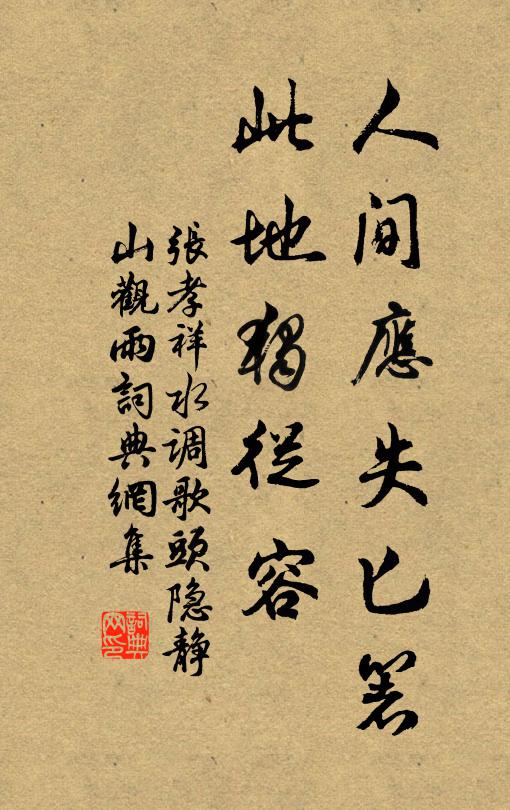 人間應失匕箸
此地獨從容
張孝祥水调歌頭隐静
山觀雨詞典網集
詞典网印